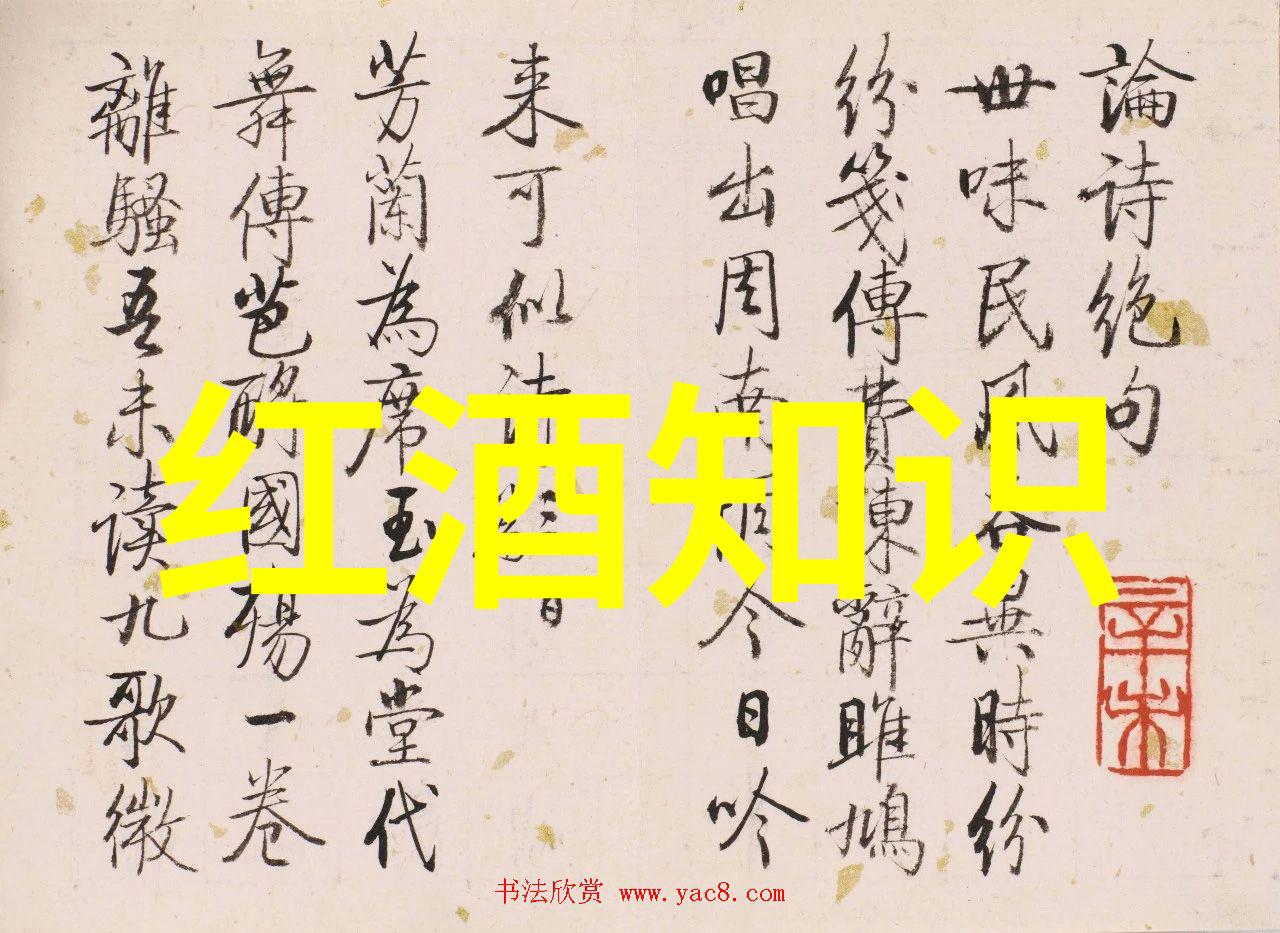 論诗绝句
世味民風各異時紛
紛箋傳費陳辭雎鳩
唱出周南今日吟
来可似
芳蘭為席玉為堂代
舞傳芭酹國殤一卷
離騷吾未读九歌微
红酒知识
辛未
书法欣赏 www.yac8.com